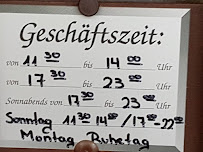 Geschäftszeit:
von 11 30 bis 14 00 Uhr
von 17 30 bis 23 00 Uhr
Sonnabends von 17 30 bis 23 00 Uhr
Sonntag 11 30 14 00 / 17 00 - 22 00
Montag Ruhetag